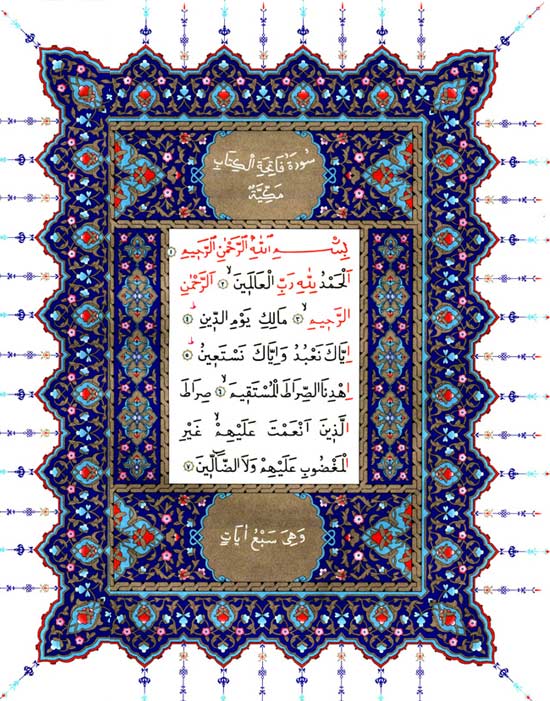 سُورَةُ فَاتِحَةِ الْكِتَابِ
مَكِّيَّةٌ
بِسْمِ اللّٰهِ الرَّحْمٰنِ الرَّحِيمِ ١
اَلْحَمْدُ لِلّٰهِ رَبِّ الْعَالَمِينَ ۙ ٢ اَلرَّحْمٰنِ
الرَّحِيمِ ۙ ٣ مَالِكِ يَوْمِ الدِّينِ ۜ ٤
اِيَّاكَ نَعْبُدُ وَاِيَّاكَ نَسْتَعِينُ ۜ ٥
اِهْدِنَا الصِّرَاطَ الْمُسْتَقِيمَ ۙ ٦ صِرَاطَ
الَّذِينَ اَنْعَمْتَ عَلَيْهِمْ ۙ غَيْرِ
الْمَغْضُوبِ عَلَيْهِمْ وَلَا الضَّٓالِّينَ ٧
وَهِىَ سَبْعُ اٰيَاتٍ